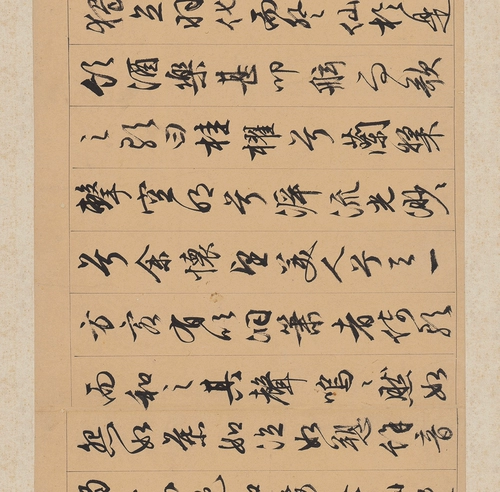 獨立羽化而登仙於是
飲酒樂甚叩舷而歌
之歌曰桂櫂兮蘭槳
擊空明兮泝流光渺〻
兮余懷望美人兮天一
方客有吹洞簫者倚歌
而和之其聲嗚〻然如
怨如慕如泣如訴餘音